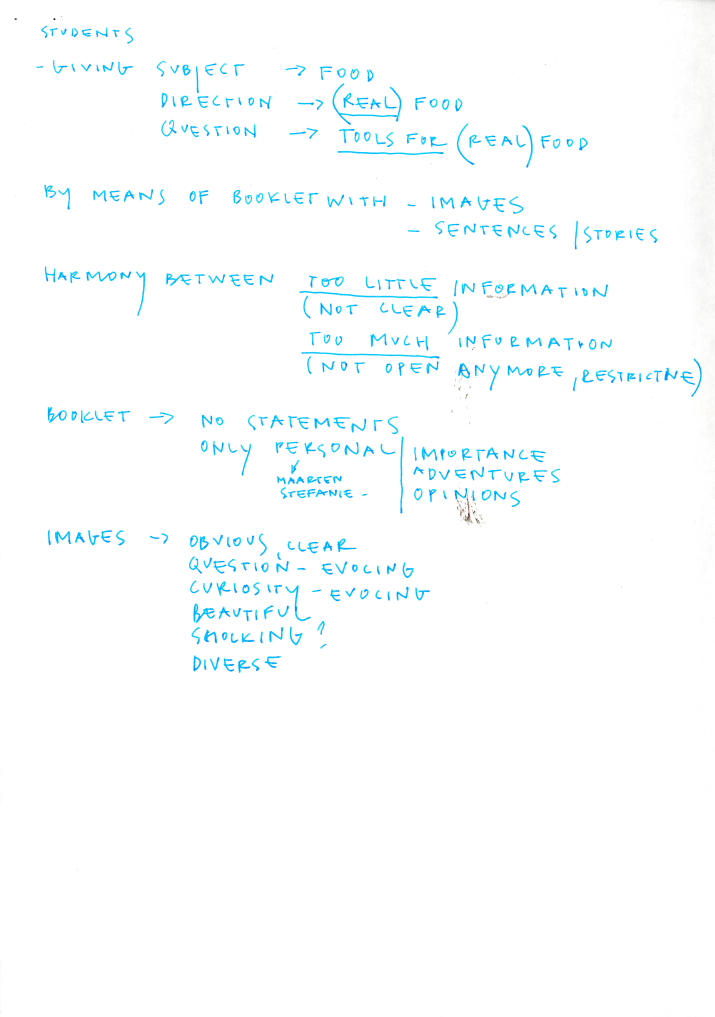 STUDENTS
- GIVING SUBJECT → FOOD
DIRECTION → (REAL) FOOD
QUESTION → TOOLS FOR (REAL) FOOD
BY MEANS OF BOOKLET WITH - IMAGES
- SENTENCES / STORIES
HARMONY BETWEEN TOO LITTLE INFORMATION
(NOT CLEAR)
TOO MUCH INFORMATION
(NOT OPEN ANYMORE, RESTRICTIVE)
BOOKLET → NO STATEMENTS
ONLY PERSONAL | IMPORTANCE
MAARTEN ADVENTURES
STEFANIE - OPINIONS
IMAGES → OBVIOUS, CLEAR
QUESTION - EVOCING
CURIOSITY - EVOCING
BEAUTIFUL
SHOCKING?
DIVERSE